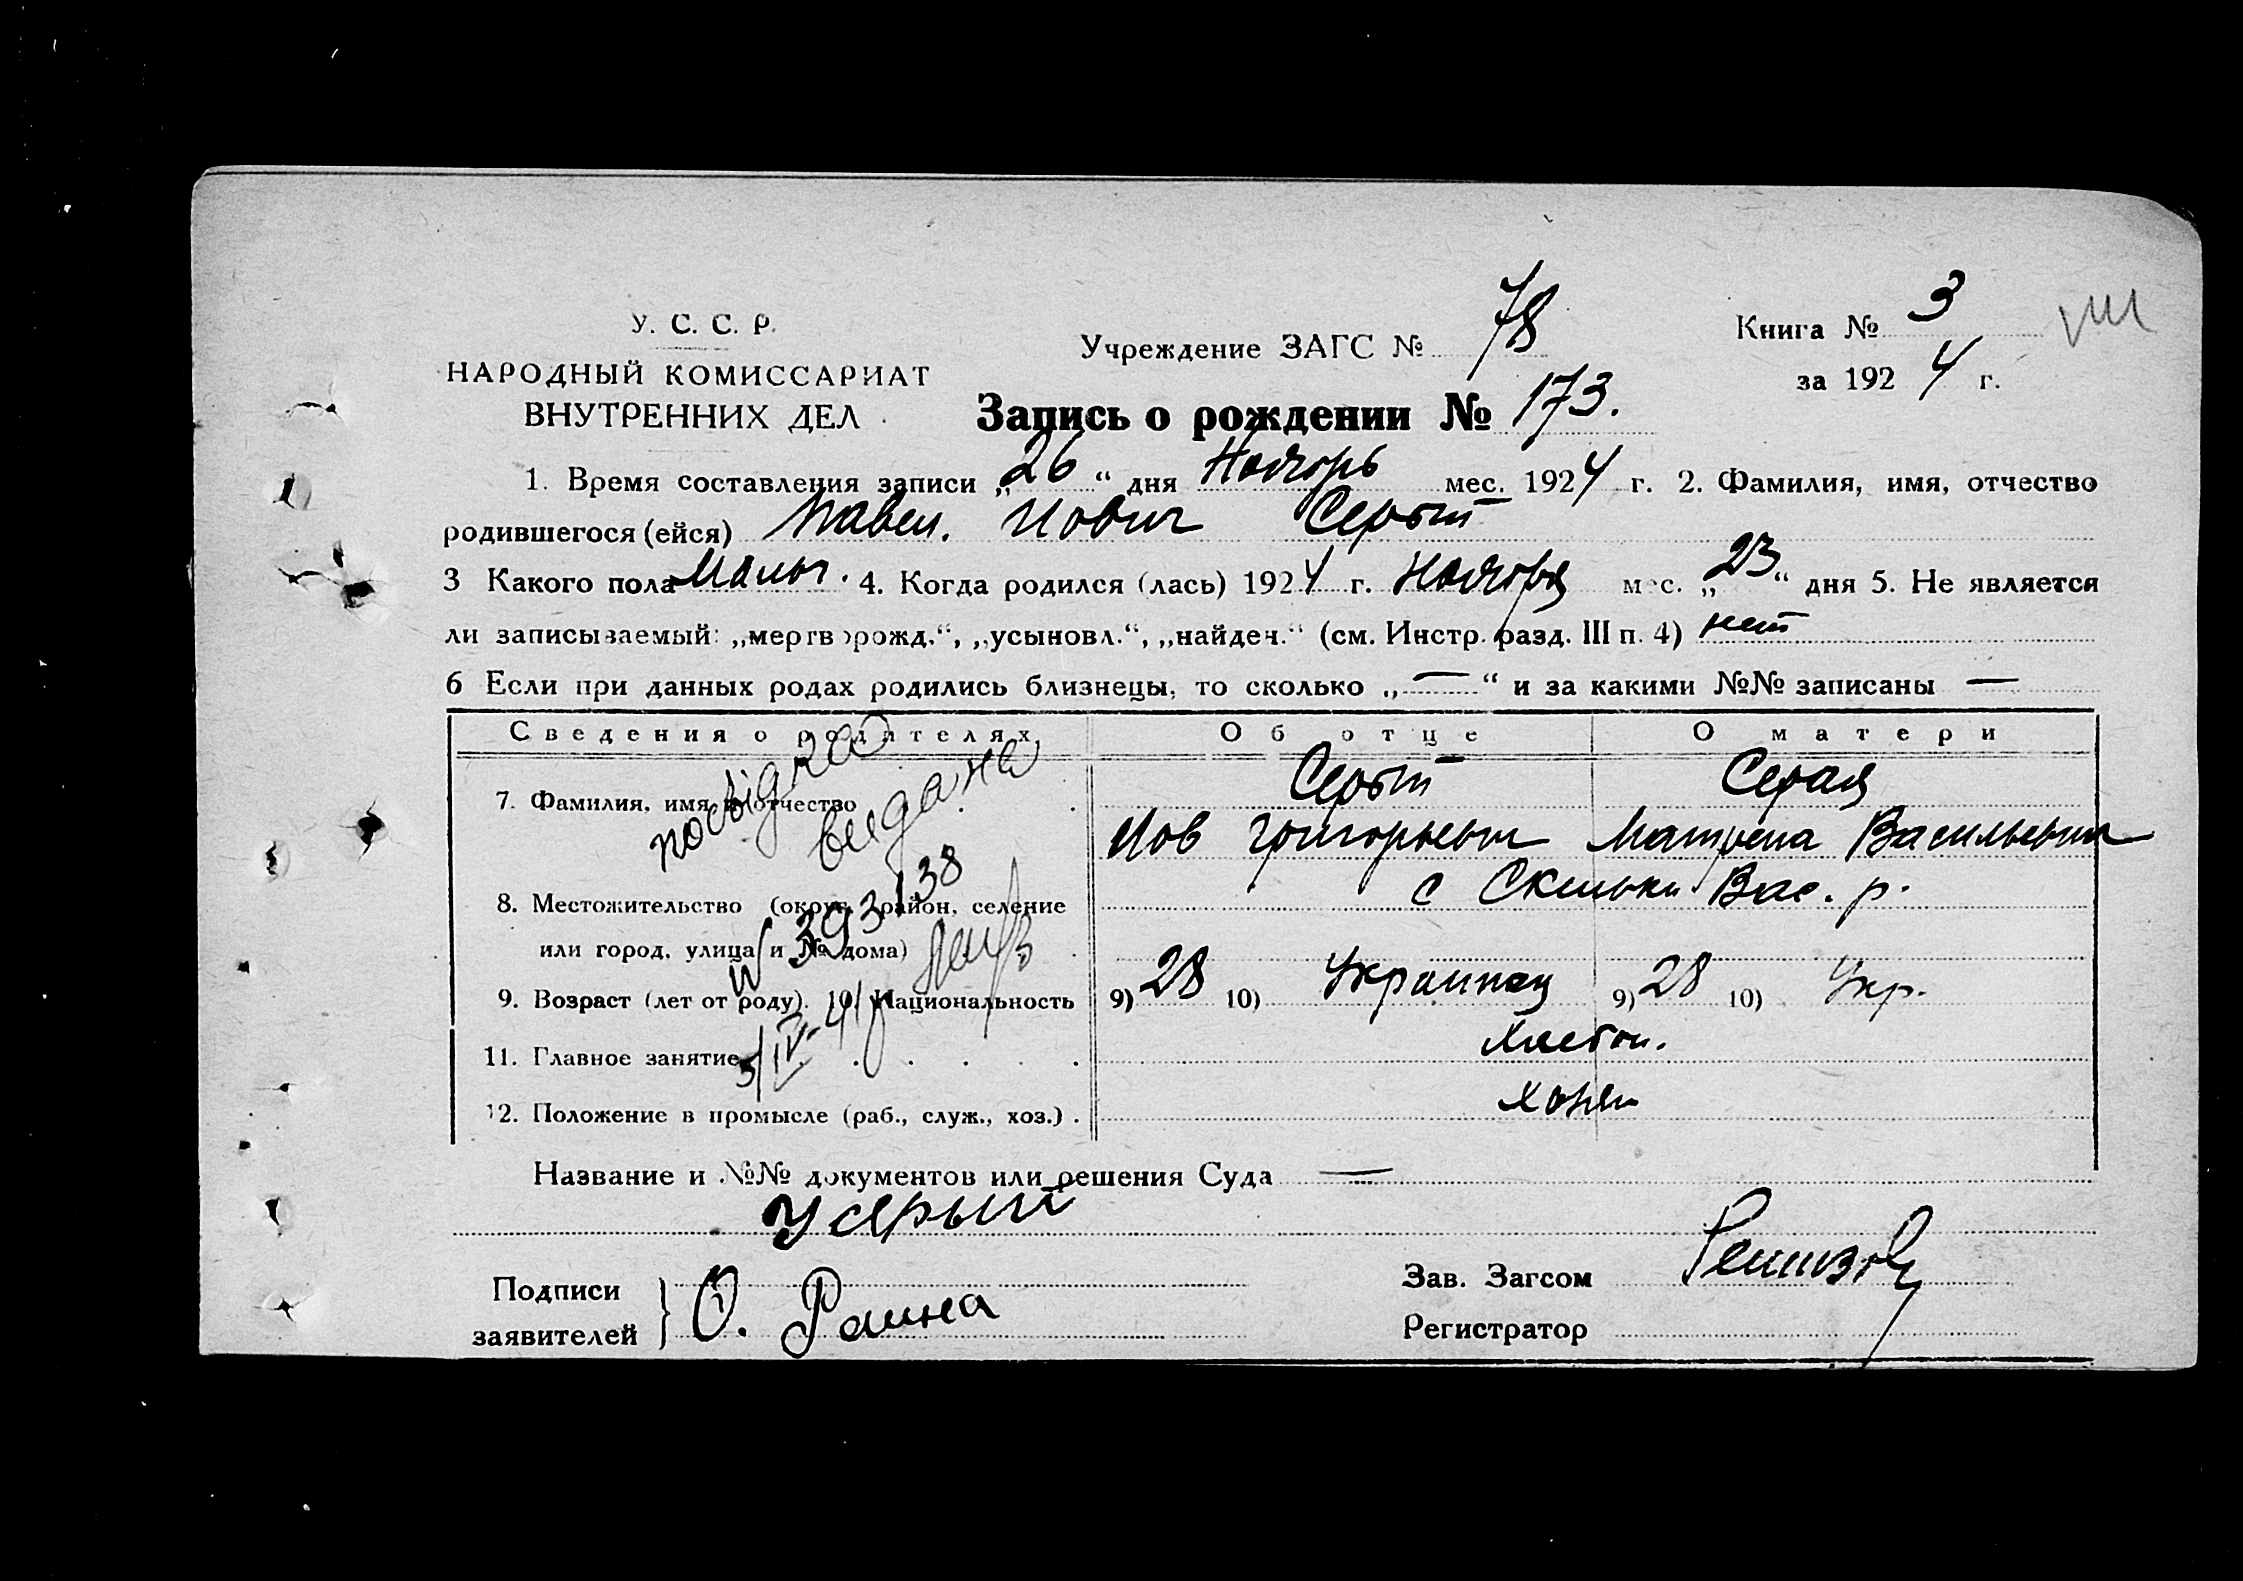 У. С. С. Р.
НАРОДНЫЙ КОМИССАРИАТ
ВНУТРЕННИХ ДЕЛ
Учреждение ЗАГС № 78
Книга № 3
за 1924 г.
Запись о рождении № 173.
1. Время составления записи „26“ дня Ноябрь мес. 1924 г. 2. Фамилия, имя, отчество
родившегося (ейся) Павел. Иович Серый
3 Какого пола Мальч. 4. Когда родился (лась) 1924 г. Ноября мес. „23“ дня 5. Не является
ли записываемый: „мертворожд.“, „усыновл.“, „найден.“ (см. Инстр. разд. III п. 4) нет
6 Если при данных родах родились близнецы, то сколько „—“ и за какими №№ записаны —
Сведения о родителях Об отце О матери
7. Фамилия, имя и отчество Серый Серая
Иов Григорьевич Матрена Васильевна
8. Местожительство (округ, район, селение с Скельки Вас. р.
или город, улица и № дома)
9. Возраст (лет от роду). 10. Национальность 9) 28 10) Украинец 9) 28 10) Укр.
11. Главное занятие Хлебоп.
12. Положение в промысле (раб., служ., хоз.) Хозяин
посвідка
видана
Название и №№ документов или решения Суда —
Серый
Подписи
заявителей
О. Раина
Зав. Загсом
Регистратор